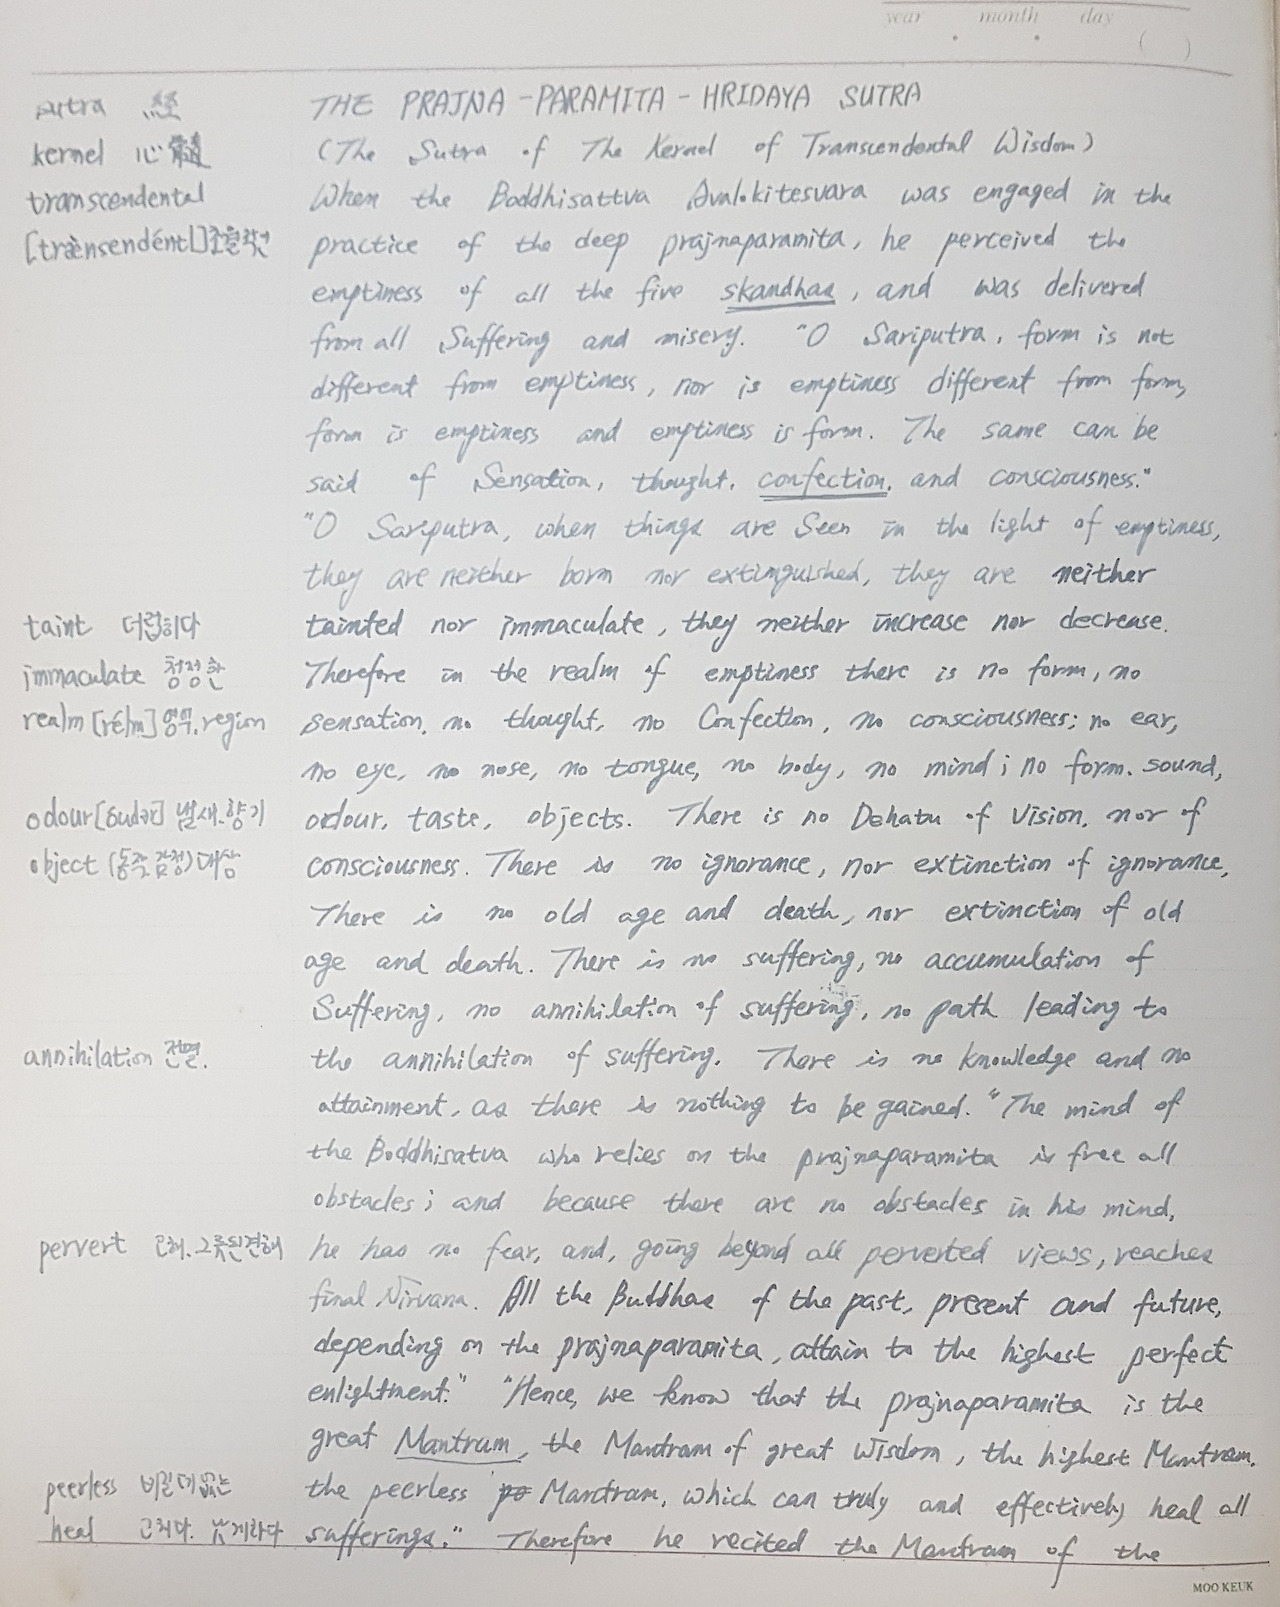 year . month . day
( )
sutra 経 THE PRAJNA-PARAMITA-HRIDAYA SUTRA
kernel 心髓 (The Sutra of The Kernel of Transcendental Wisdom)
transcendental When the Boddhisattva Avalokitesvara was engaged in the
[trænsendéntl] practice of the deep prajnaparamita, he perceived the
emptiness of all the five skandhas, and was delivered
from all Suffering and misery. "O Sariputra, form is not
different from emptiness, nor is emptiness different from form,
form is emptiness and emptiness is form. The same can be
said of Sensation, thought, confection, and consciousness."
"O Sariputra, when things are Seen in the light of emptiness,
they are neither born nor extinguished, they are neither
taint 더럽히다 tainted nor immaculate, they neither increase nor decrease.
immaculate 청정한 Therefore in the realm of emptiness there is no form, no
realm [rélm] 영역, region sensation, no thought, no Confection, no consciousness; no ear,
no eye, no nose, no tongue, no body, no mind; no form. sound,
odour [óudər] 냄새.향기 odour, taste, objects. There is no Dehatu of Vision, nor of
object (동작, 감정) 대상 consciousness. There is no ignorance, nor extinction of ignorance,
There is no old age and death, nor extinction of old
age and death. There is no suffering, no accumulation of
Suffering, no annihilation of suffering, no path leading to
annihilation 전멸. the annihilation of suffering. There is no knowledge and no
attainment, as there is nothing to be gained. "The mind of
the Boddhisatva who relies on the prajnaparamita is free all
obstacles; and because there are no obstacles in his mind,
pervert 그릇된견해 he has no fear, and, going beyond all perverted views, reaches
final Nirvana. All the Buddhas of the past, present and future,
depending on the prajnaparamita, attain to the highest perfect
enlightment." "Hence, we know that the prajnaparamita is the
great Mantram, the Mantram of great Wisdom, the highest Mantram,
peerless 비길데없는 the peerless Mantram, which can truly and effectively heal all
heal 고치다. 낫게하다 sufferings." Therefore he recited the Mantram of the
MOO KEUK